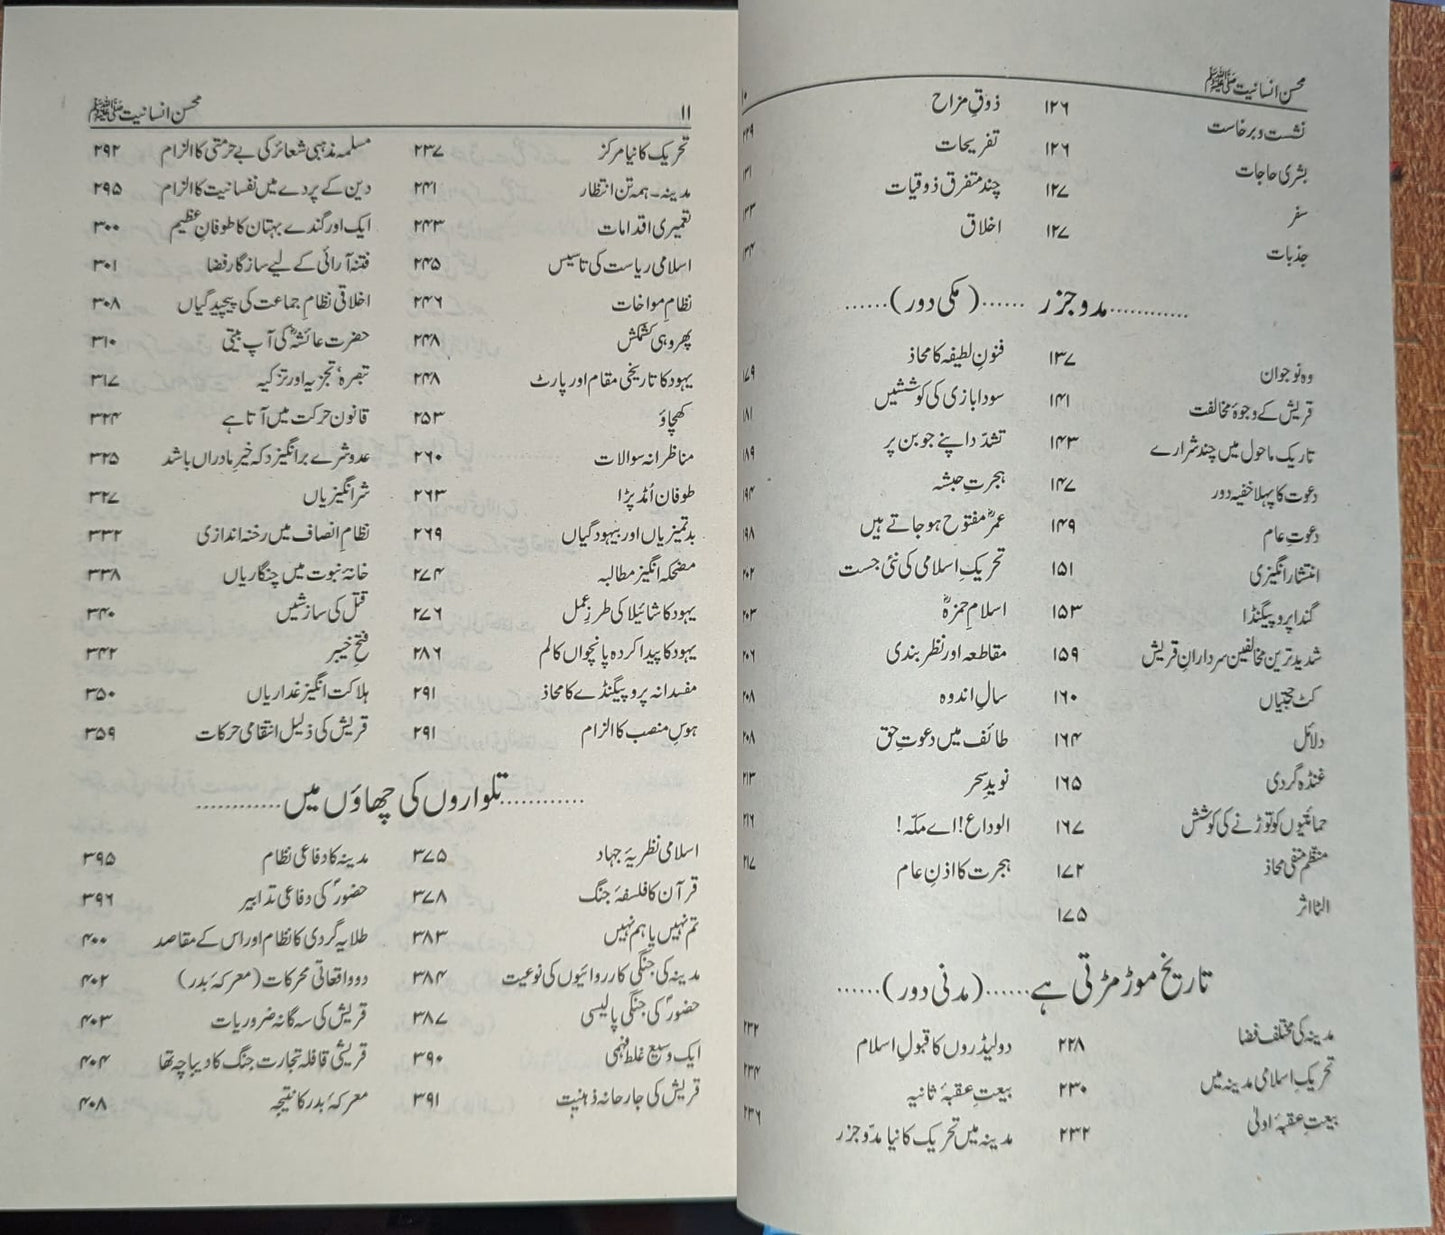 محسن انسانیت ﷺ ۱۰
نشست و برخاست ۱۲۶ ذوقِ مزاح ۲۲۹
بشری حاجات ۱۲۶ تفریحات ۱۳۱
سفر ۱۲۷ چند متفرق ذوقیات ۱۳۳
جذبات ۱۲۷ اخلاق ۱۳۴
............مدوجزر ......(مکی دور)......
وہ نوجوان ۱۳۷ فنونِ لطیفہ کا محاذ ۱۷۹
قریش کے وجوۂ مخالفت ۱۴۱ سودابازی کی کوششیں ۱۸۱
تاریک ماحول میں چند شرارے ۱۴۳ تشدّد اپنے جوبن پر ۱۸۹
دعوت کا پہلا خفیہ دور ۱۴۷ ہجرتِ حبشہ ۱۹۴
دعوتِ عام ۱۴۹ عمرؓ مفتوح ہو جاتے ہیں ۱۹۸
انتشار انگیزی ۱۵۱ تحریکِ اسلامی کی نئی جست ۲۰۲
گندا پروپیگنڈا ۱۵۳ اسلامِ حمزہؓ ۲۰۳
شدید ترین مخالفین سردارانِ قریش ۱۵۹ مقاطعہ اور نظر بندی ۲۰۶
کٹ حجتیاں ۱۶۰ سالِ اندوہ ۲۰۸
دلائل ۱۶۴ طائف میں دعوتِ حق ۲۰۸
غنڈہ گردی ۱۶۵ نویدِ سحر ۲۱۳
حمائتیوں کو توڑنے کی کوشش ۱۶۷ الوداع! اے مکّہ! ۲۱۶
منظم منفی محاذ ۱۷۲ ہجرت کا اذنِ عام ۲۱۷
الٹا اثر ۱۷۵
تاریخ موڑ مڑتی ہے......(مدنی دور)......
مدینہ کی مختلف فضا ۲۲۸ دو لیڈروں کا قبولِ اسلام ۲۳۲
تحریکِ اسلامی مدینہ میں ۲۳۰ بیعتِ عقبۂ ثانیہ ۲۳۴
بیعتِ عقبۂ اولیٰ ۲۳۲ مدینہ میں تحریک کا نیا مدّوجزر ۲۳۶
۱۱ محسن انسانیت ﷺ
تحریک کا نیا مرکز ۲۳۷ مسلمہ مذہبی شعائر کی بے حرمتی کا الزام ۲۹۲
مدینہ۔ ہمہ تن انتظار ۲۴۱ دین کے پردے میں نفسانیت کا الزام ۲۹۵
تعمیری اقدامات ۲۴۳ ایک اور گندے بہتان کا طوفانِ عظیم ۳۰۰
اسلامی ریاست کی تاسیس ۲۴۵ فتنہ آرائی کے لیے سازگار فضا ۳۰۱
نظامِ مواخات ۲۴۶ اخلاقی نظامِ جماعت کی پیچیدگیاں ۳۰۸
پھر وہی کشمکش ۲۴۸ حضرت عائشہؓ کی آپ بیتی ۳۱۰
یہود کا تاریخی مقام اور پارٹ ۲۴۸ تبصرہٗ تجزیہ اور تزکیہ ۳۱۷
کھچاؤ ۲۵۳ قانون حرکت میں آتا ہے ۳۲۴
مناظرانہ سوالات ۲۶۰ عدو شرے برانگیزد کہ خیرِ مادراں باشد ۳۲۵
طوفان اُمڈ پڑا ۲۶۳ شر انگیزیاں ۳۲۷
بدتمیزیاں اور بیہودگیاں ۲۶۹ نظامِ انصاف میں رخنہ اندازی ۳۳۲
مضحکہ انگیز مطالبہ ۲۷۴ خانۂ نبوت میں چنگاریاں ۳۳۸
یہود کا شائیلا کی طرزِ عمل ۲۷۶ قتل کی سازشیں ۳۴۰
یہود کا پیدا کردہ پانچواں کالم ۲۸۶ فتحِ خیبر ۳۴۲
مفسدانہ پروپیگنڈے کا محاذ ۲۹۱ ہلاکت انگیز غداریاں ۳۵۰
ہوسِ منصب کا الزام ۲۹۱ قریش کی ذلیل انتقامی حرکات ۳۵۹
............تلواروں کی چھاؤں میں............
اسلامی نظریۂ جہاد ۳۷۵ مدینہ کا دفاعی نظام ۳۹۵
قرآن کا فلسفۂ جنگ ۳۷۸ حضورؐ کی دفاعی تدابیر ۳۹۶
تم نہیں یا ہم نہیں ۳۸۳ طلایہ گردی کا نظام اور اس کے مقاصد ۴۰۰
مدینہ کی جنگی کارروائیوں کی نوعیت ۳۸۴ دو واقعاتی محرکات (معرکۂ بدر) ۴۰۲
حضورؐ کی جنگی پالیسی ۳۸۷ قریش کی سہ گانہ ضروریات ۴۰۳
ایک وسیع غلط فہمی ۳۹۰ قریشی قافلہ تجارت جنگ کا دیباچہ تھا ۴۰۴
قریش کی جارحانہ ذہنیت ۳۹۱ معرکۂ بدر کا نتیجہ ۴۰۸